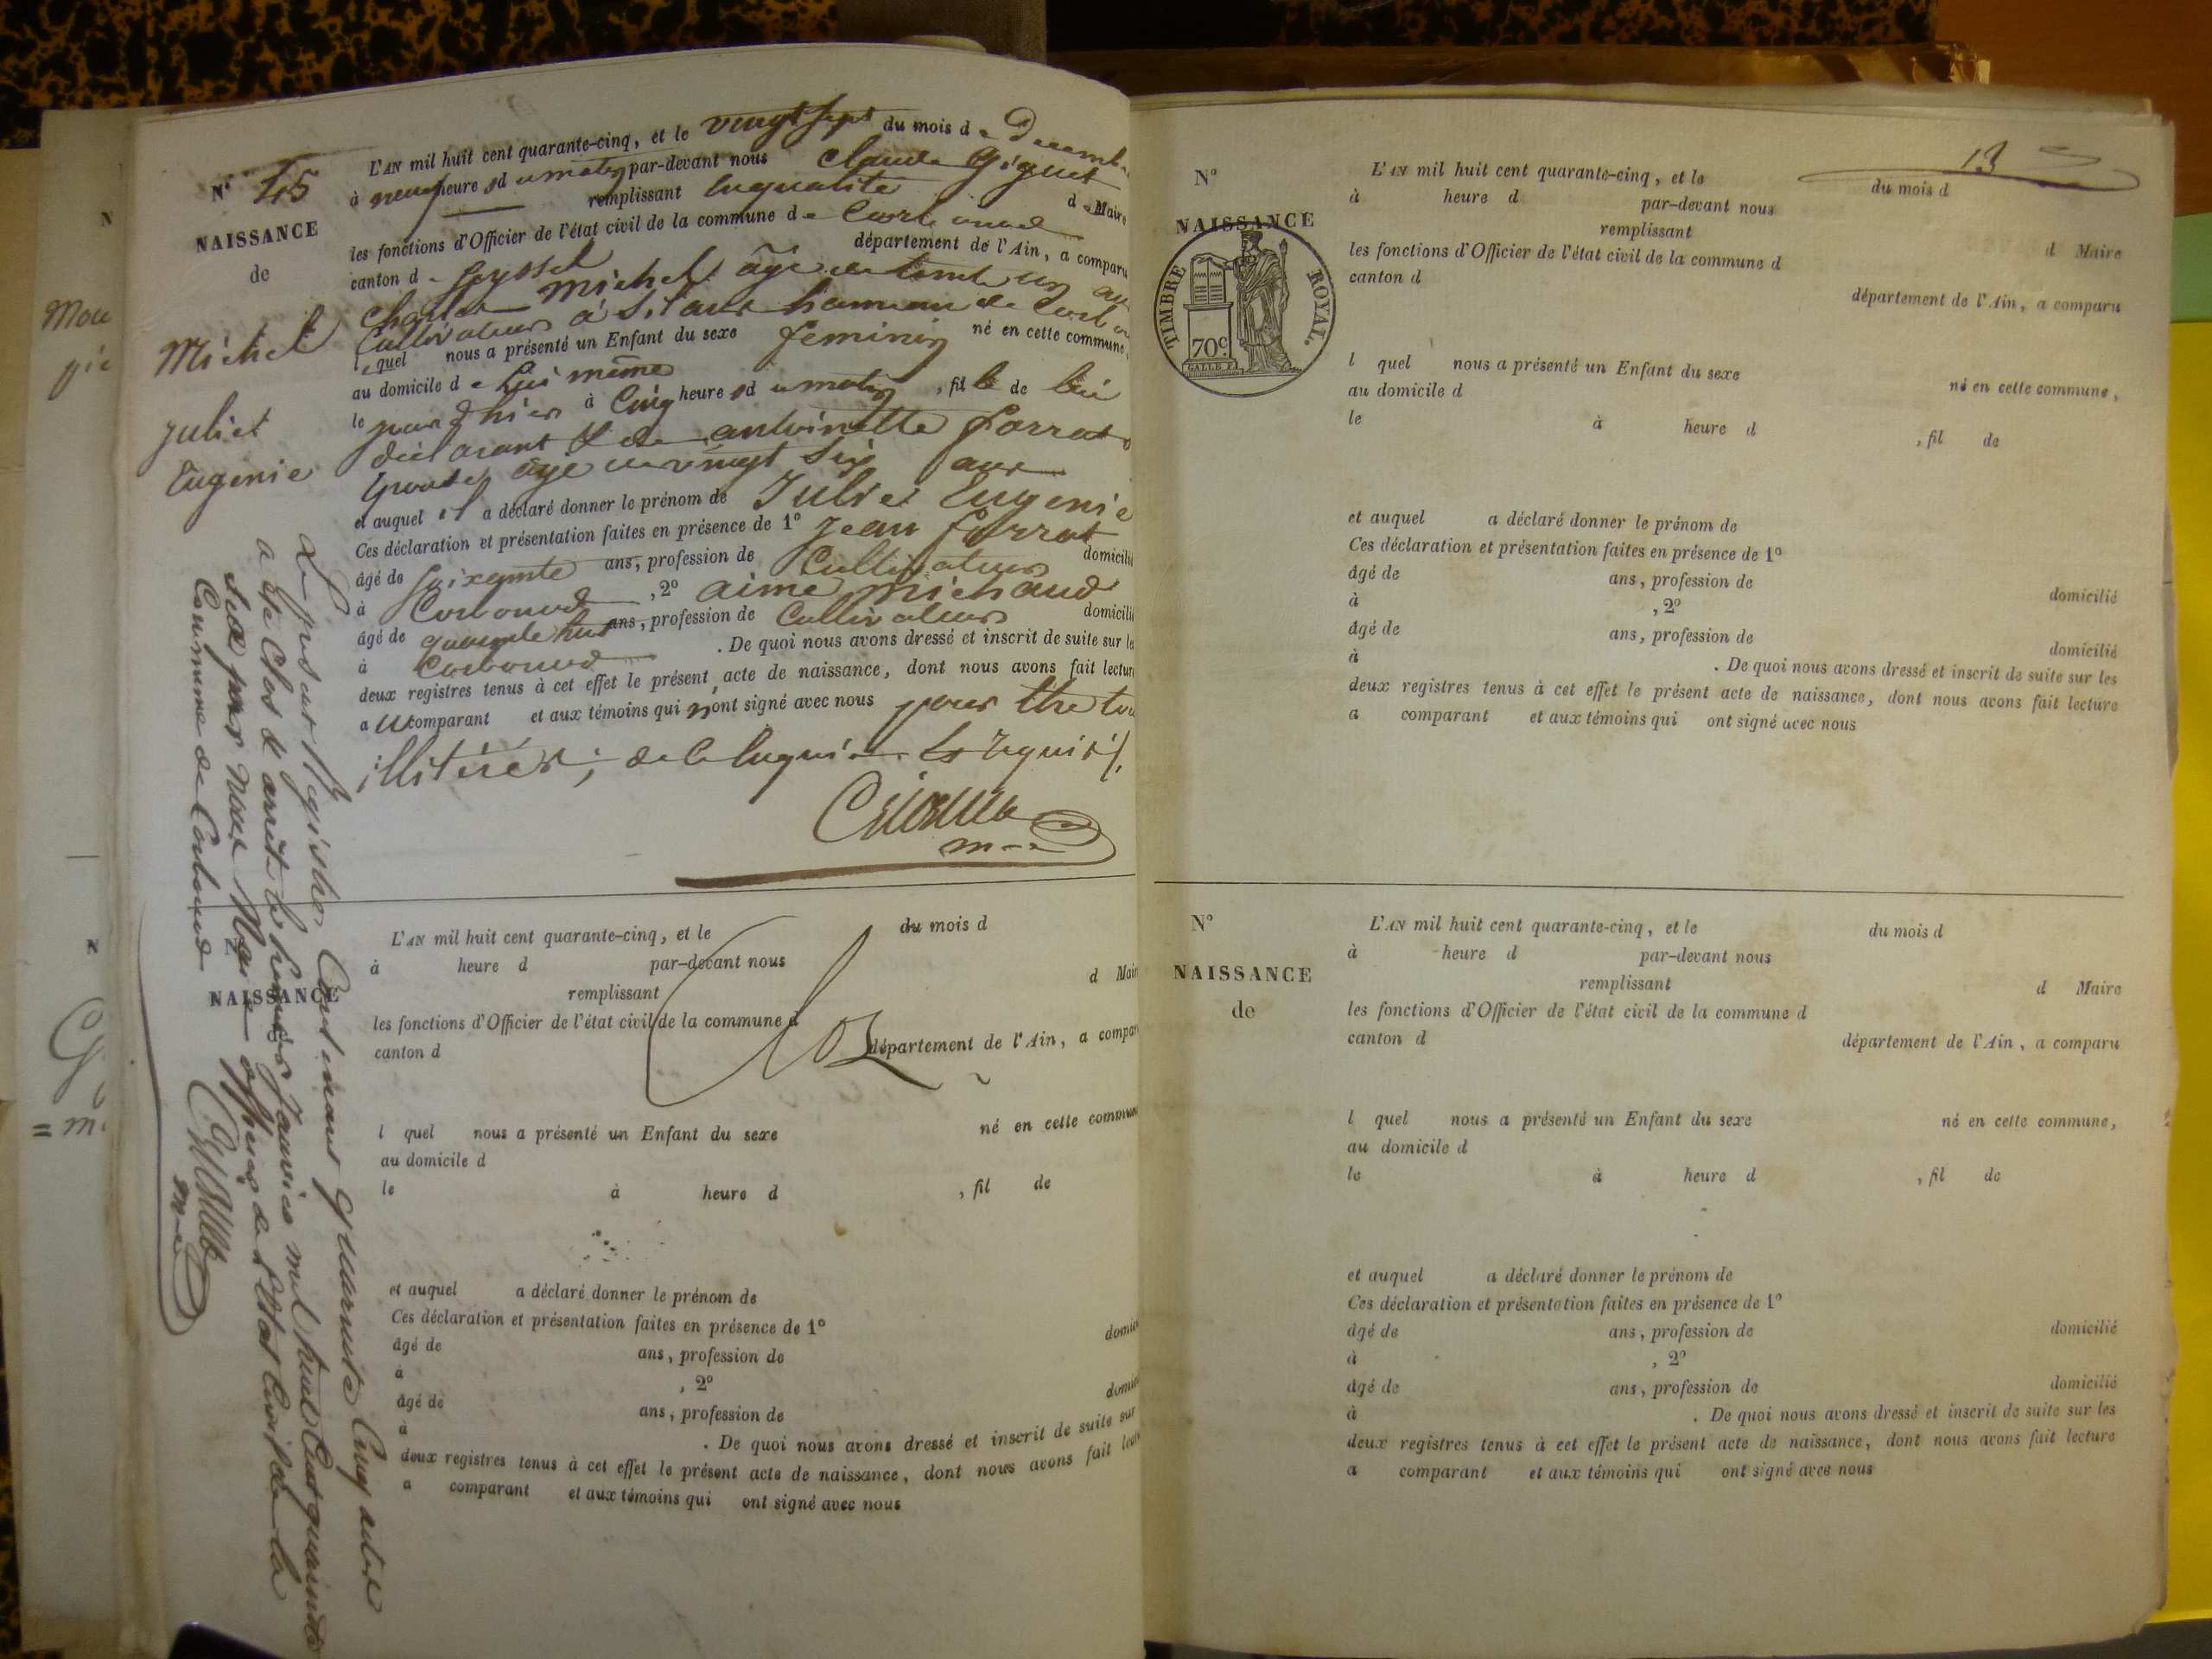 N° 45
NAISSANCE
de
Michel
Juliet
Eugenie
L'AN mil huit cent quarante-cinq, et le vingt sept du mois de Decembre
à neuf heures du matin par-devant nous Claude Giguet
remplissant en qualité d Maire
les fonctions d'Officier de l'état civil de la commune de Corbonod
canton de Seyssel département de l'Ain, a comparu
Charles Michel âgé de trente un ans
Cultivateur à Sitaur hameau de Corbonod
lequel nous a présenté un Enfant du sexe feminin né en cette commune,
au domicile de Lui même
le jour d'hier à Cinq heures du matin, fille de lui
déclarant & de antoinette
agé de vingt six ans
et auquel il a déclaré donner le prénom de Julie Eugenie
Ces déclaration et présentation faites en présence de 1° Jean
âgé de soixante ans, profession de Cultivateur domicilié
à Corbonod, 2° aime Michaud
âgé de quarante huit ans, profession de Cultivateur domicilié
à Corbonod. De quoi nous avons dressé et inscrit de suite sur les
deux registres tenus à cet effet le présent acte de naissance, dont nous avons fait lecture
au comparant et aux témoins qui n'ont signé avec nous pour être tous
illitérés; de le enquis & requis
Le présent Registre Contenant quarante Cinq actes
a été Clos & arrêté le premier Janvier mil huit Cent quarante
Six par Nous Maire officier de l'Etat Civil de la
Commune de Corbonod
N°
NAISSANCE
L'AN mil huit cent quarante-cinq, et le du mois d
à heure d par-devant nous
remplissant d Maire
les fonctions d'Officier de l'état civil de la commune d
canton d département de l'Ain, a comparu
l quel nous a présenté un Enfant du sexe né en cette commune
au domicile d
le à heure d , fil de
et auquel a déclaré donner le prénom de
Ces déclaration et présentation faites en présence de 1°
âgé de ans, profession de
à , 2°
âgé de ans, profession de
à . De quoi nous avons dressé et inscrit de suite sur
deux registres tenus à cet effet le présent acte de naissance, dont nous avons fait lecture
a comparant et aux témoins qui ont signé avec nous
13
N°
NAISSANCE
TIMBRE ROYAL.
70c.
L'AN mil huit cent quarante-cinq, et le du mois d
à heure d par-devant nous
remplissant d Maire
les fonctions d'Officier de l'état civil de la commune d
canton d département de l'Ain, a comparu
l quel nous a présenté un Enfant du sexe né en cette commune,
au domicile d
le à heure d , fil de
et auquel a déclaré donner le prénom de
Ces déclaration et présentation faites en présence de 1°
âgé de ans, profession de domicilié
à , 2°
âgé de ans, profession de domicilié
à . De quoi nous avons dressé et inscrit de suite sur les
deux registres tenus à cet effet le présent acte de naissance, dont nous avons fait lecture
a comparant et aux témoins qui ont signé avec nous
N°
NAISSANCE
de
L'AN mil huit cent quarante-cinq, et le du mois d
à heure d par-devant nous
remplissant d Maire
les fonctions d'Officier de l'état civil de la commune d
canton d département de l'Ain, a comparu
l quel nous a présenté un Enfant du sexe né en cette commune,
au domicile d
le à heure d , fil de
et auquel a déclaré donner le prénom de
Ces déclaration et présentation faites en présence de 1°
âgé de ans, profession de domicilié
à , 2°
âgé de ans, profession de domicilié
à . De quoi nous avons dressé et inscrit de suite sur les
deux registres tenus à cet effet le présent acte de naissance, dont nous avons fait lecture
a comparant et aux témoins qui ont signé avec nous